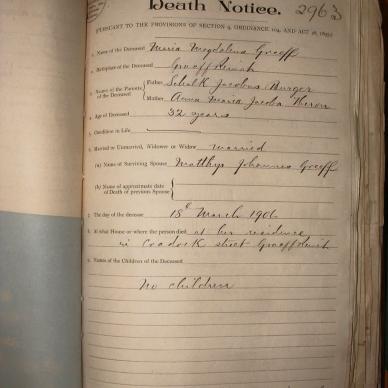 Death Notice.
2963
PURSUANT TO THE PROVISIONS OF SECTION 9, ORDINANCE 104, AND ACT
1. Name of the Deceased Maria Magdalena Graaff
2. Birthplace of the Deceased Graaff Reinet
3. Names of the Parents of the Deceased
Father Schalk Jacobus Burger
Mother Anna Maria Jacoba Theron
4. Age of Deceased 32 years
5. Condition in Life
6. Married or Unmarried, Widower or Widow married
(a) Name of Surviving Spouse Matthys Johannes Graaff
(b) Name of approximate date of Death of previous Spouse
7. The day of the decease 18th March 1906
8. At what House or where the person died at her residence
in Cradock street Graaff Reinet
9. Names of the Children of the Deceased
No children